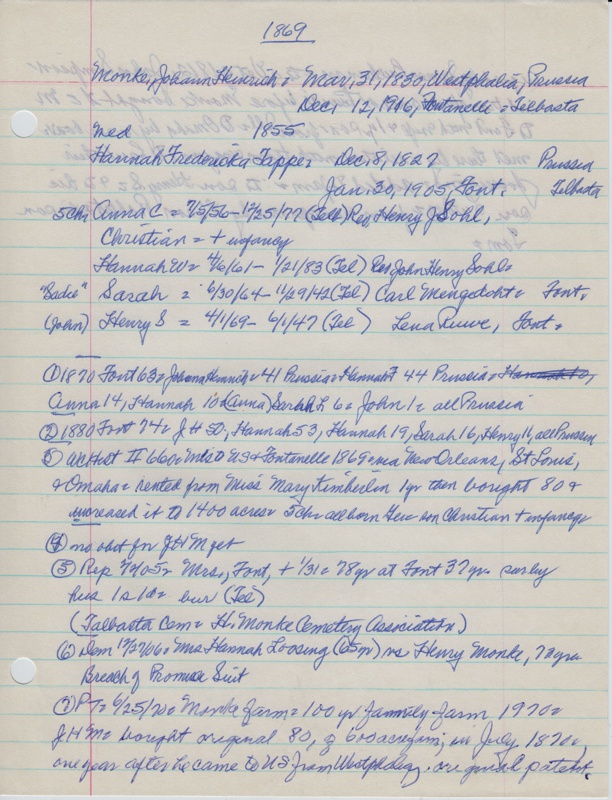 1869
Monke, Johann Heinrich = Mar, 31, 1830, Westphalia, Prussia
Dec, 12, 1916, Fontanelle = Telbasta
med 1855
Hannah Fredericka Tappe = Dec, 8, 1827 Prussia
Jan. 30, 1905, Font. Telbasta
5 chs Anna C = 7/5/56 - 12/25/77 (Tel) Rev, Henry J Sohl,
Christian = + infancy
Hannah W = 4/6/61 - 1/21/83 (Tel) Rev John Henry Sohl =
"Sadie" Sarah = 6/30/64 - 11/29/42 (Tel) Carl Mengedoht = Font,
(John) Henry S = 4/1/69 - 6/1/47 (Tel) Lena Ruwe, Font =
① 1870 Font 63 = Johann Heinrich = 41 Prussia = Hannah F 44 Prussia =
Anna 14, Hannah 10 = (Anna) Sarah L 6 = John 1 = all Prussia
② 1880 Font 74 = J H 50, Hannah 53, Hannah 19, Sarah 16, Henry 11, all Prussia
③ Wc Hist II 660 = Md to US = Fontanelle 1869 = via New Orleans, St Louis,
& Omaha = rented from Miss Mary Kimberlin 1 yr then bought 80 &
increased it to 1400 acres = 5 chs = all born Ger = son Christian + infancy =
④ no obit for J H M yet
⑤ Rep 2/ /05 = Mrs, Font, + 1/31 = 78 yr at Font 37 yr = surv by
hus 1 s 1 d = bur (Tel)
(Talbasta Cem = H. Monke Cemetery Association)
⑥ Dem 12/27/06 = Mrs Hannah Loosing (65 yr) vs Henry Monke, 72 yrs
Breach of Promise Suit
⑦ PT = 6/25/70 = Monke farm = 100 yr family farm, 1970 =
J H M = bought original 80, of 600 acre farm, in July, 1870,
one year after he came to US from Westphalia. original patent.